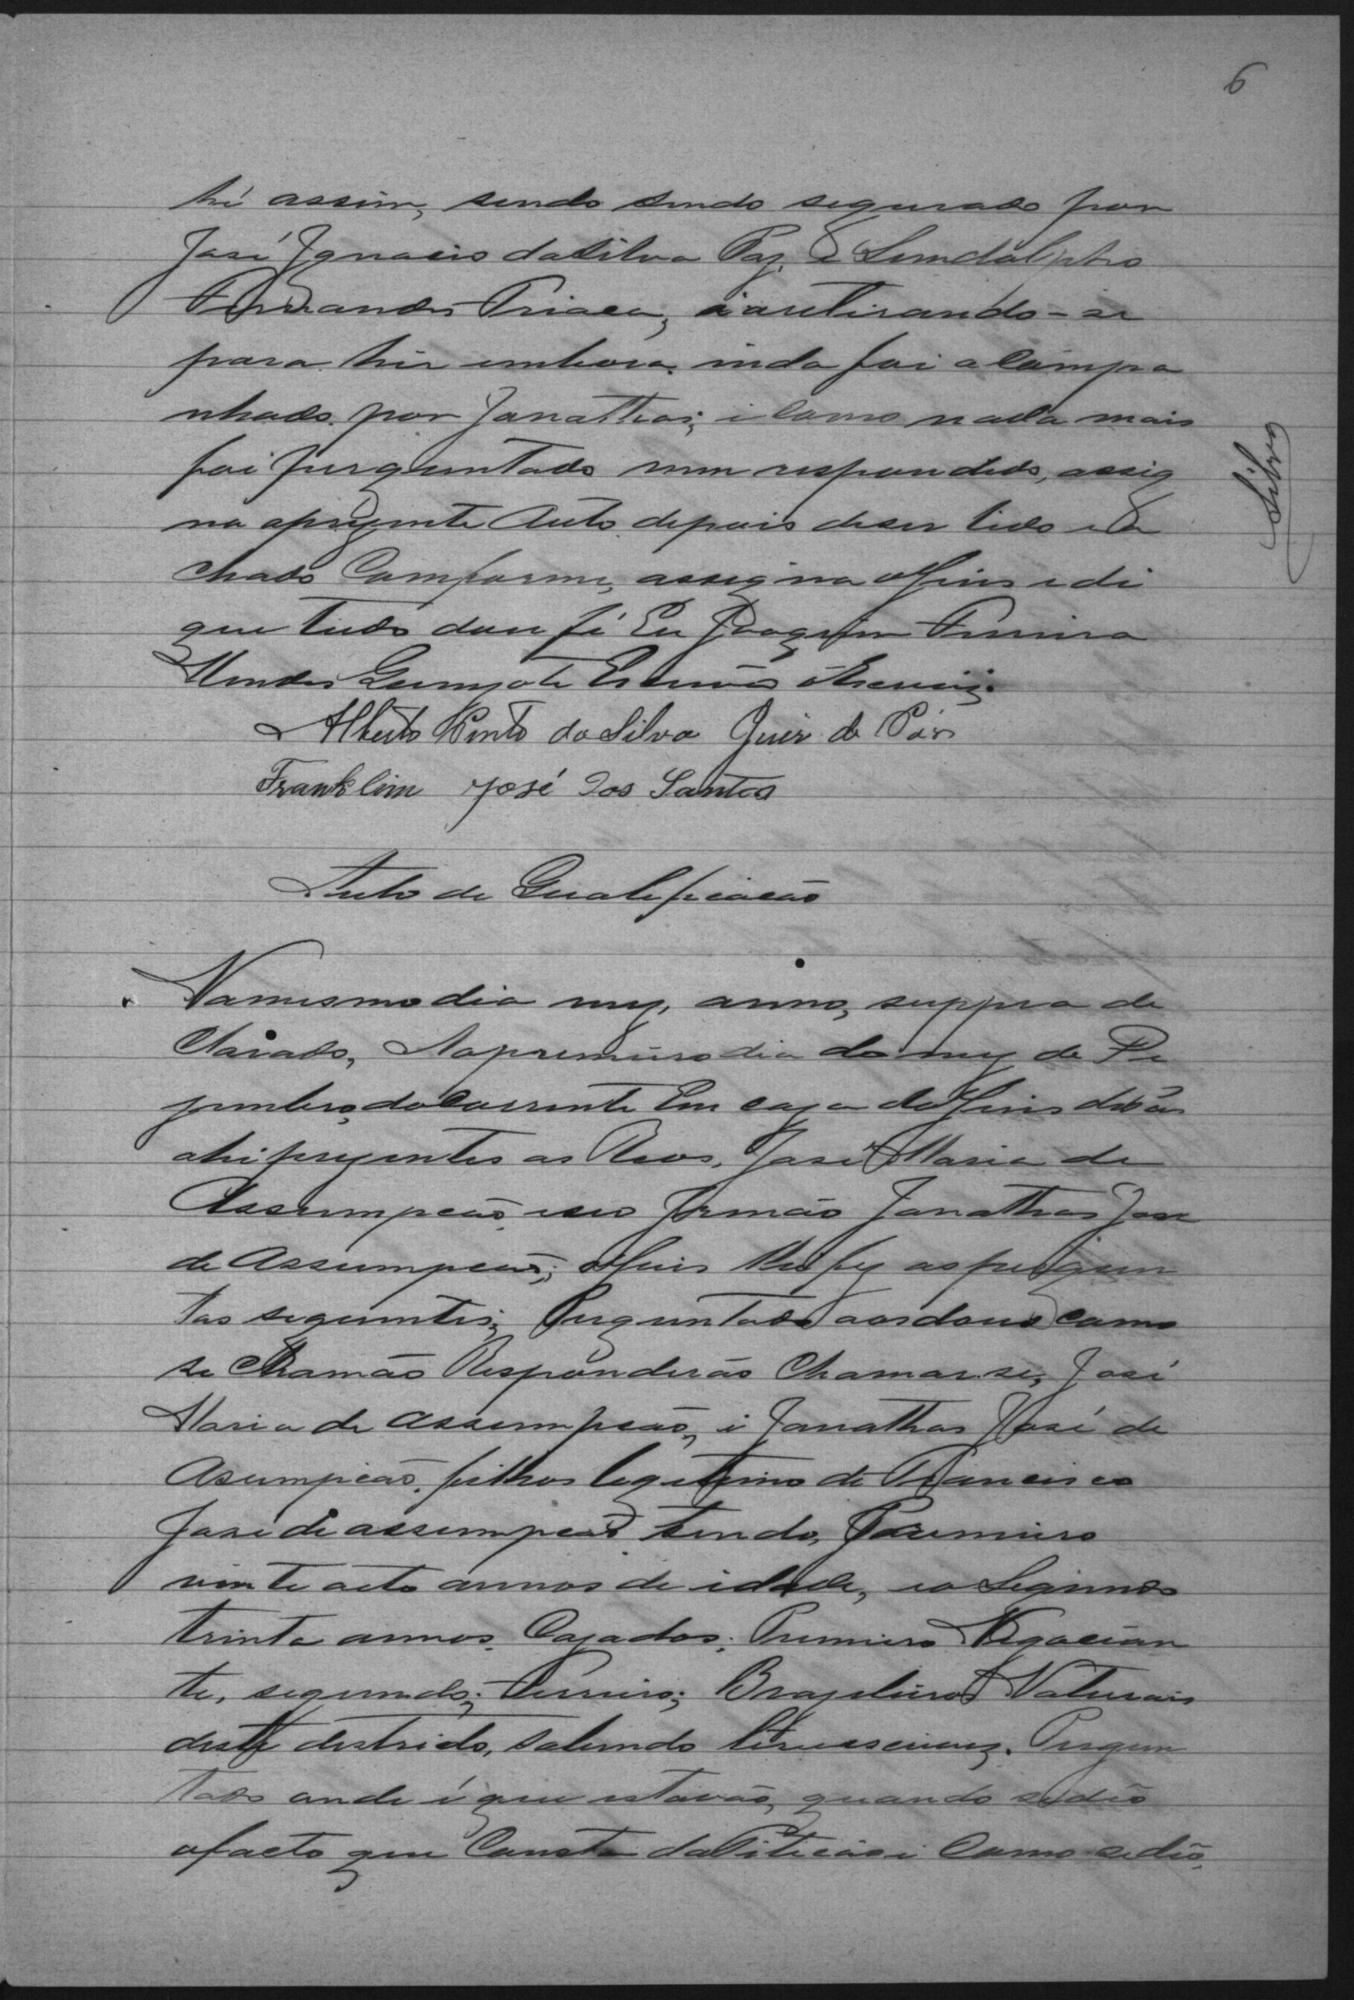 6
hé assim, sendo sendo segurado por
José Ignacio da Silva Paz, e Lindolpho
Fernandes Friaca, i aretirando-se
para hir embora, inda foi acompa
nhado por Janathas; i como nada mais
foi perguntado nem respondido, assig
na aprezente Auto depois deser lido e a
chado Comforme, assigna o Juis e di
que tudo dou fé Eu Joaquim Ferreira
Mendes Escrivão o Escrevi.
Alberto Pinto da Silva Juiz de Páz
Franklim José dos Santos
Silva
Auto de Qualificação
Namesmo dia mez, anno, suppra de
Clarado, Aopremeiro dia do mez de De
zembro, do Corrente Em caza do Juis
ahi prezentes os Reos, José Maria de
Assumpção, e seo Irmão Janathas José
de Assumpção; o Juis lhes fez as pergun
tas seguintes; Perguntado aos dous como
se Chamão Responderão Chamar-se, José
Maria de Assumpção, i Janathas José de
Asumpição, filhos legitimo de Francisco
José de assumpção tendo, Premeiro
vinte aeto annos de idade, eo Segundo
trinta annos, Cazados; Premeiro Negocian
te, segundo; Ferreiro; Brazileiros Naturais
deste destrido, sabendo ler e escrever. Pergun
tado onde é que estavão, quando sedeo
ofacto que Consta da Petição i Como sedeo,